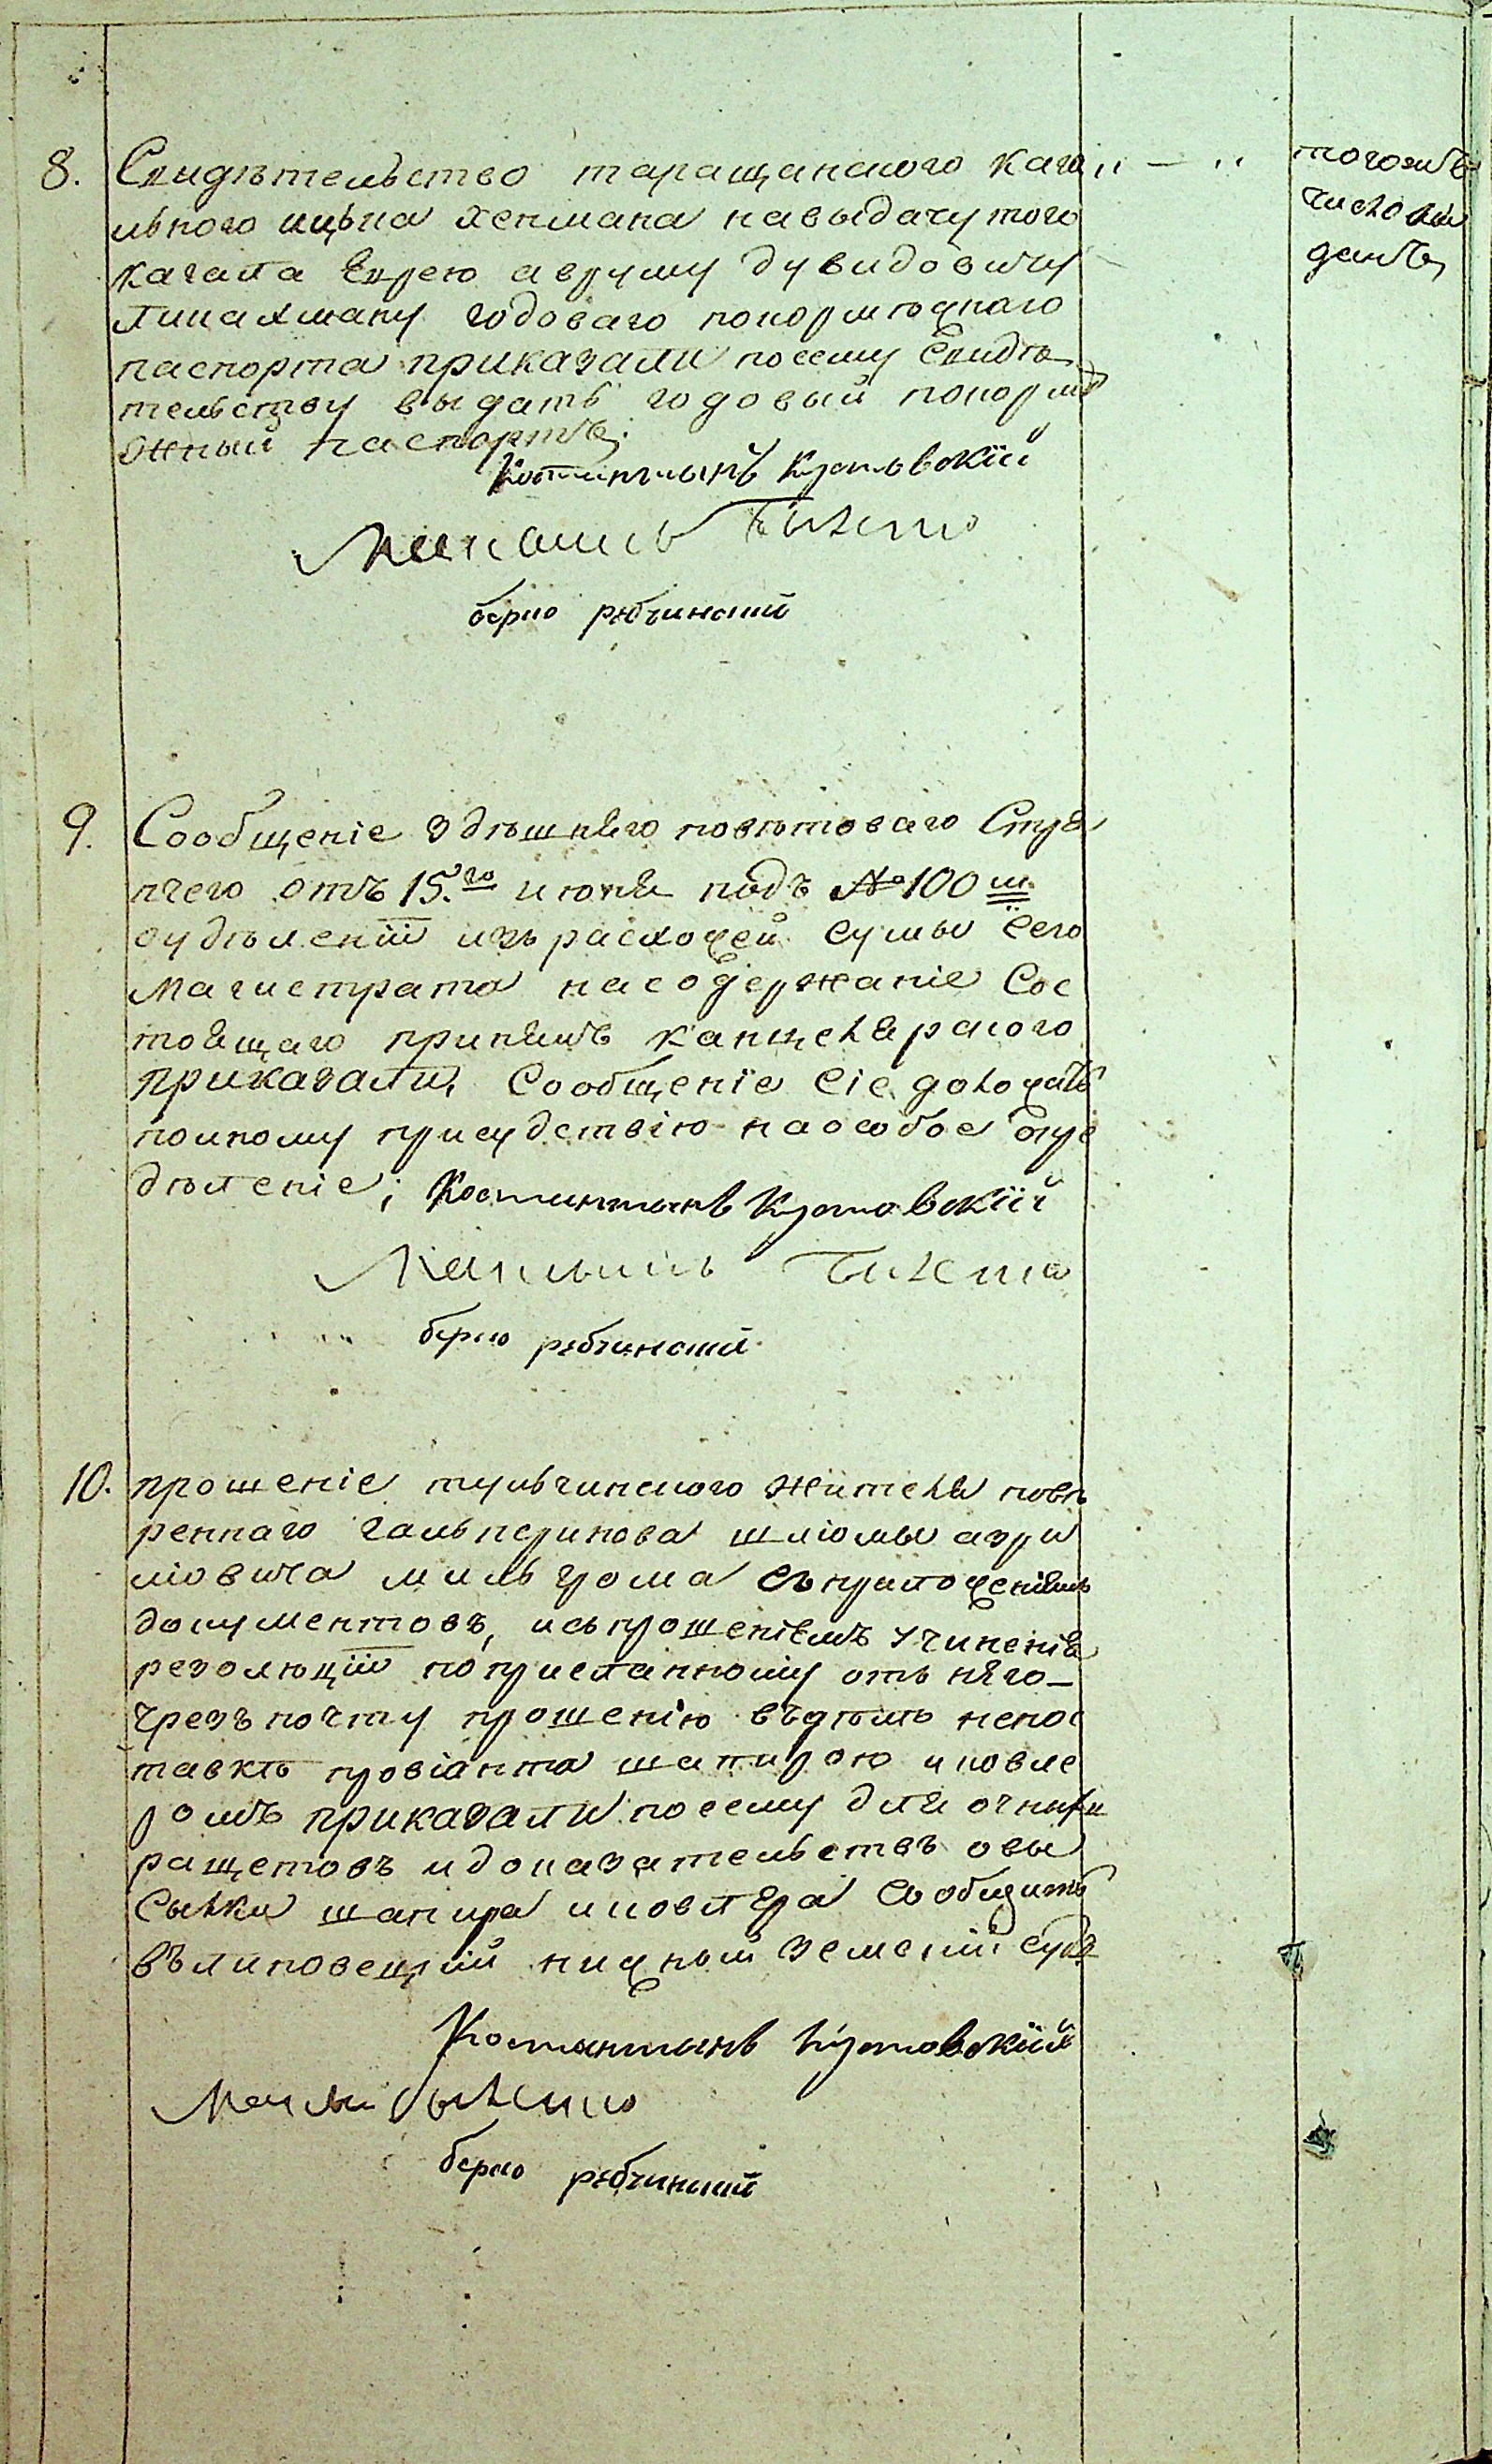 8. Свидѣтельство таращанского кага
льного ицька хенмана навыдачу того
кагала Еврею авруму дувидовичу
годоваго покормежнаго
паспорта приказали посему Свидѣ
тельству выдать годовый покорме
жный паспортъ;
того жъ
числа
данъ
Константынъ Кутовскій
берко рябчинский
9. Сообщеніе здѣшняго повѣтоваго Стря
пчего отъ 15.го июня подъ № 100м
оудѣленіи изърасхожей сумы сего
магистрата насодержаніе Сос
тоящаго приняшъ канцелярского
приказали, Сообщеніе сіе доложить
полному присудствію наособое опре
дѣленіе;
Костантынъ Кутовскій
берко рябчинский
10. прошеніе тульчинского жителя повѣ
реннаго гальперинова шліомы азри
ліовича мильгрома съприложеніямъ
документовъ, исьпрошеніемъ учиненія
резолюціи поприсланному отъ няго
чрезъ почту прошенію въделѣ непос
тавкѣ провіанта шапирою иковле
ромъ приказали посему для очных
ращетовъ идоказательствъ овы
сылки шапира иковлера Сообщить
вълиповецкій нижный земскій судъ
Костантынъ Кутовскій
берко рябчинский